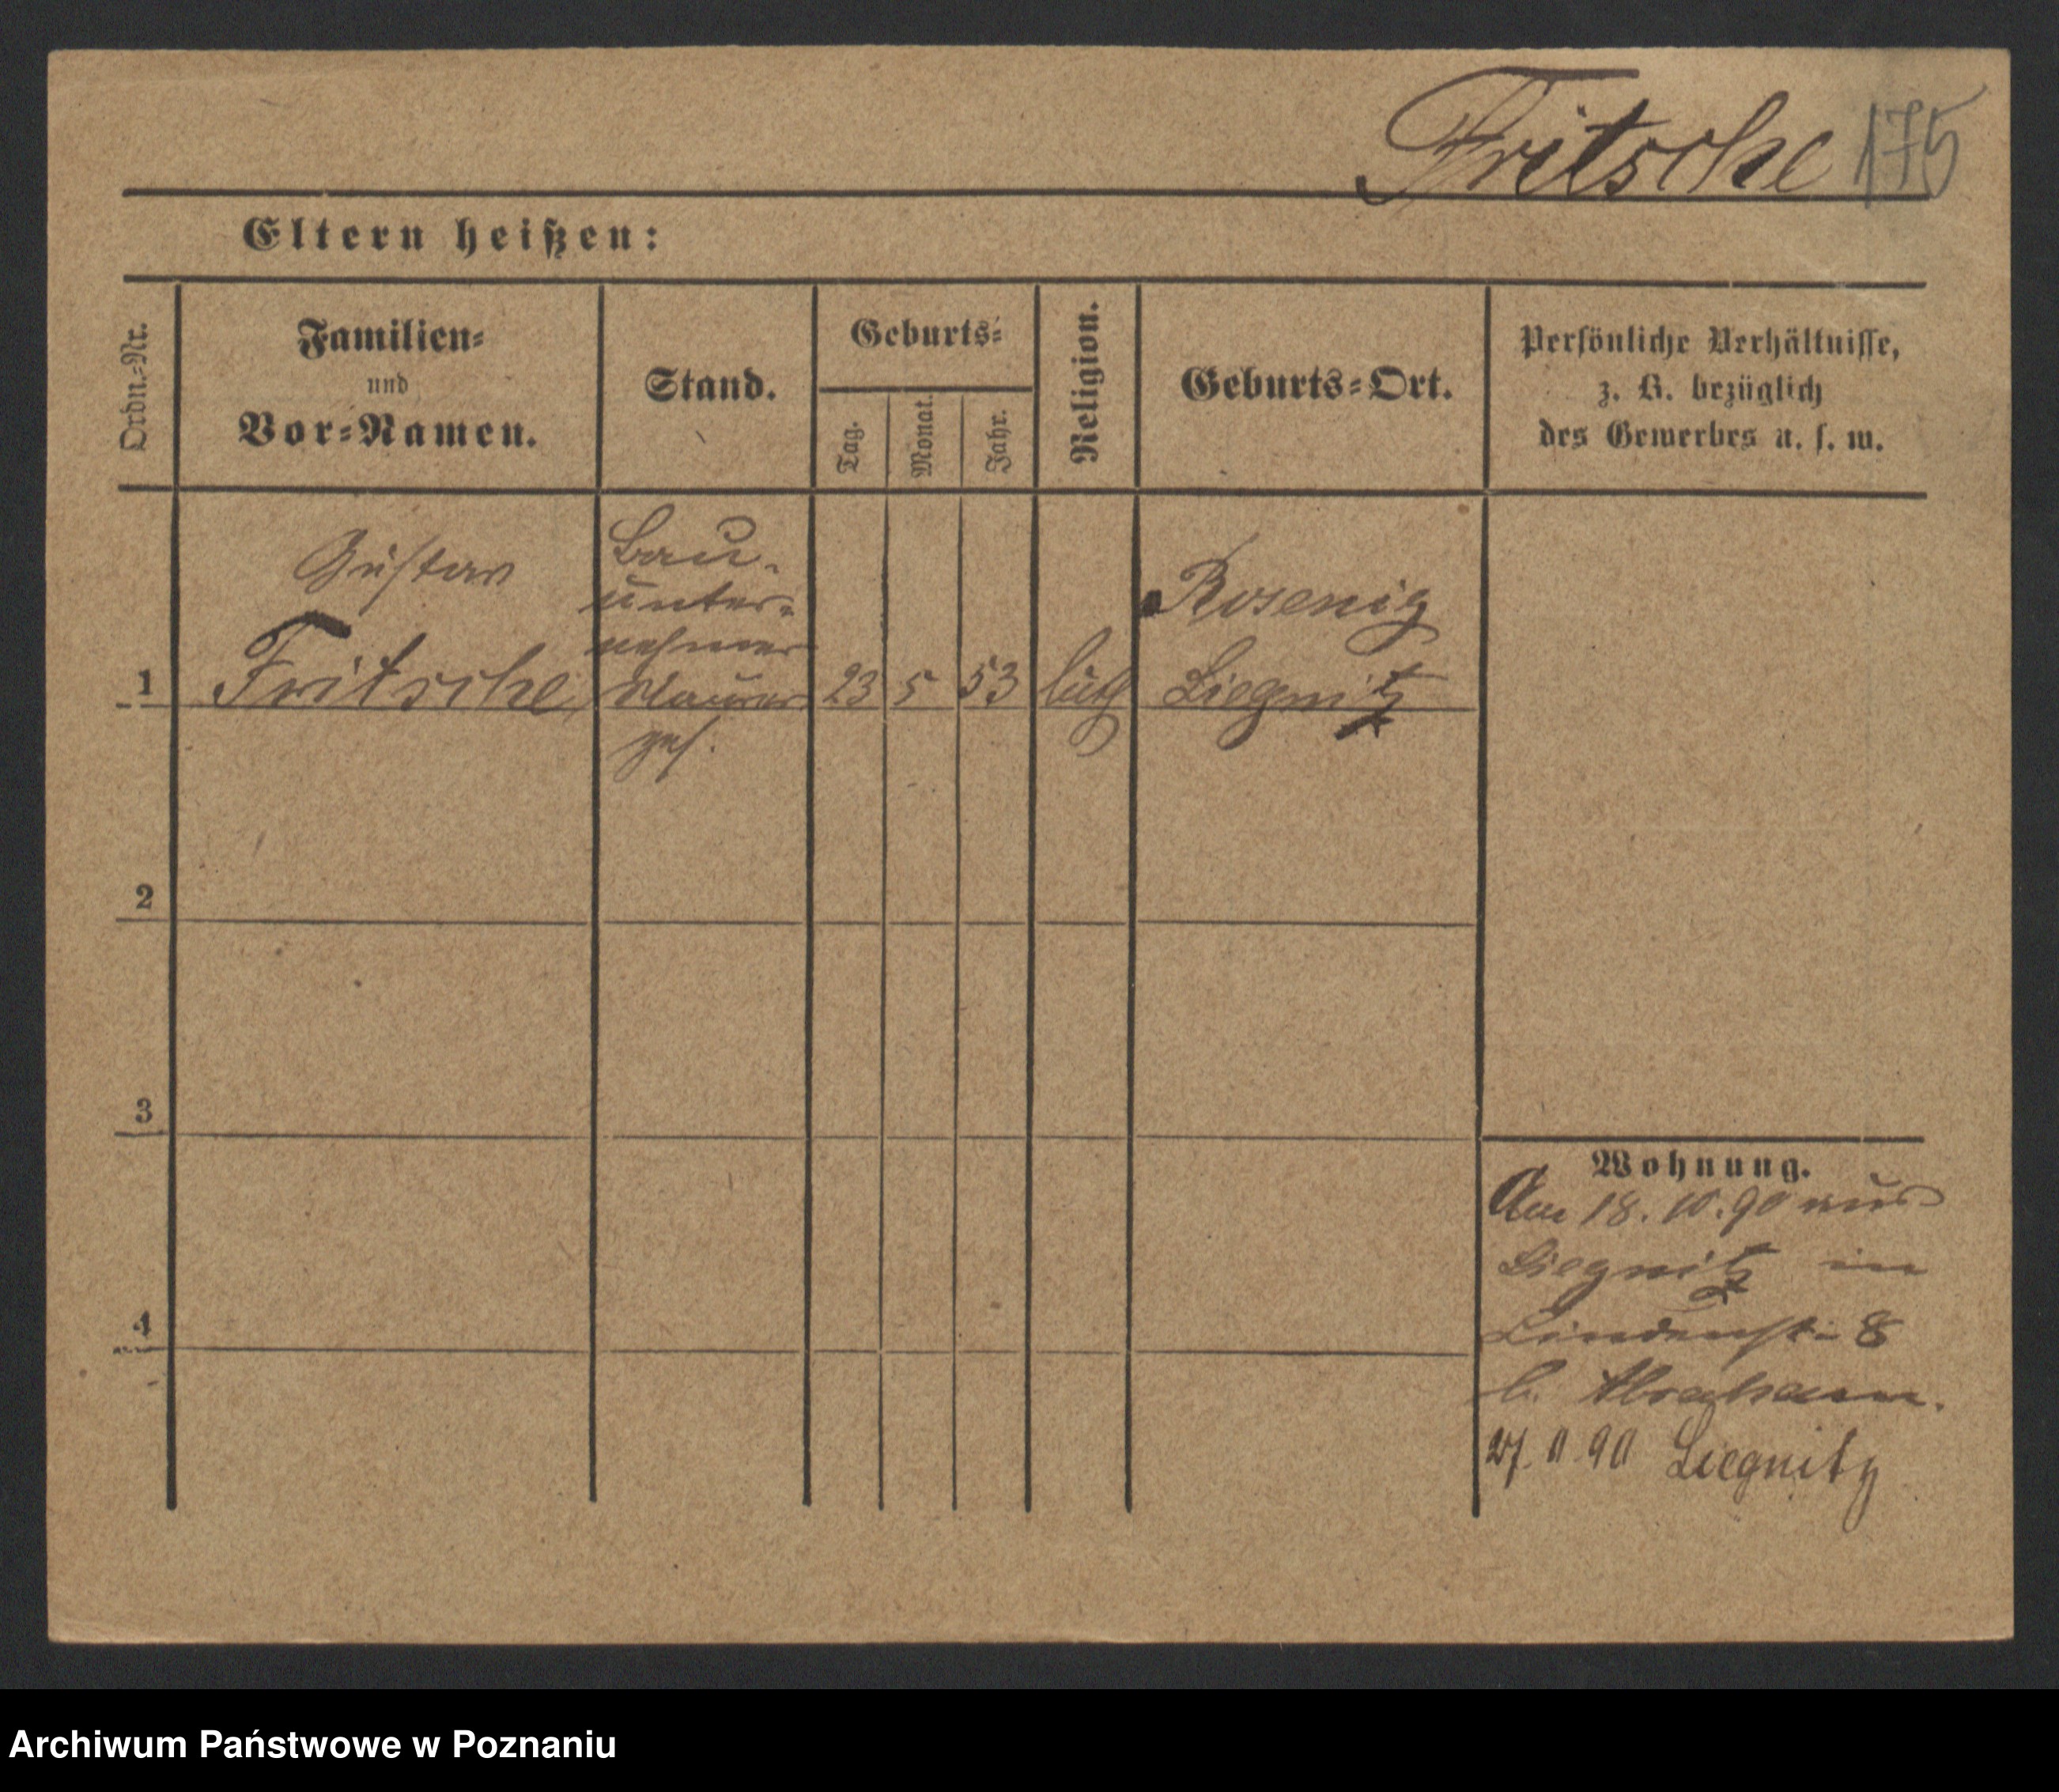 Fritsche 175
Eltern heißen:
Ordn.-Nr.
Familien-
und
Vor-Namen.
Stand.
Geburts-
Tag.
Monat.
Jahr.
Religion.
Geburts-Ort.
Persönliche Verhältnisse,
z. B. bezüglich
des Gewerbes u. s. w.
1
Gustav
Fritsche
Bau-
unter-
nehmer
Maurer
ges.
23
5
53
luth
Rosenig
Liegnitz
2
3
4
Wohnung.
Am 18.10.90 aus
Liegnitz in
Lindenstr 8
b. Abraham.
27. 11. 90 Liegnitz
Archiwum Państwowe w Poznaniu